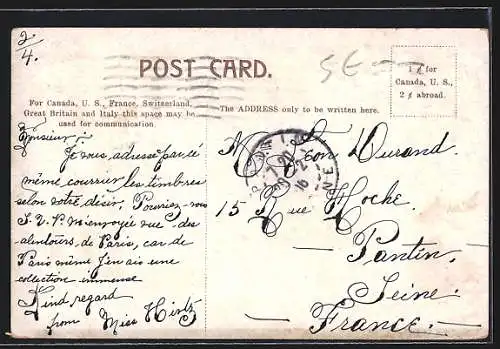 2/4.
POST CARD.
SE
1 ¢ for
Canada, U. S.,
2 ¢ abroad.
For Canada, U. S., France, Switzerland,
Great Britain and Italy this space may be
used for communication.
The ADDRESS only to be written here.
Monsieur:
Je vous adresse par le
même courrier les timbres
selon votre désir, Pouriez-vous
S.V.P. m'envoyée vue des
alentours de Paris, car de
Paris même J'en ais une
collection immense
Kind regard
from Miss Hintz
M. Léon Durand.
15 Rue Hoche.
— Pantin,
Seine.
— France. —